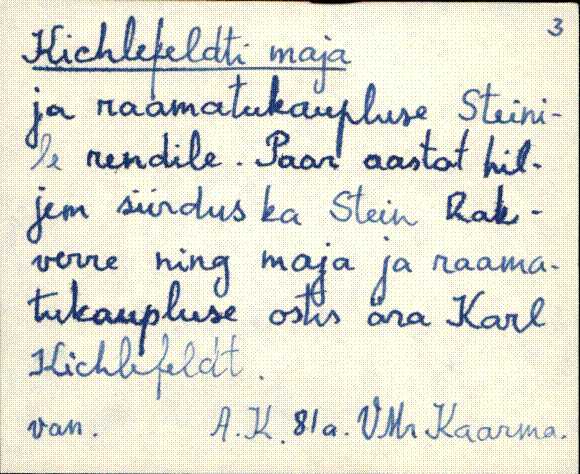 3
Kichlefeldti maja
ja raamatukaupluse Steini-
le rendile. Paar aastat hil-
jem siirdus ka Stein Rak-
verre ning maja ja raama-
tukaupluse ostis ära Karl
Kichlefeldt.
van. A.K. 81a. VMr Kaarma.